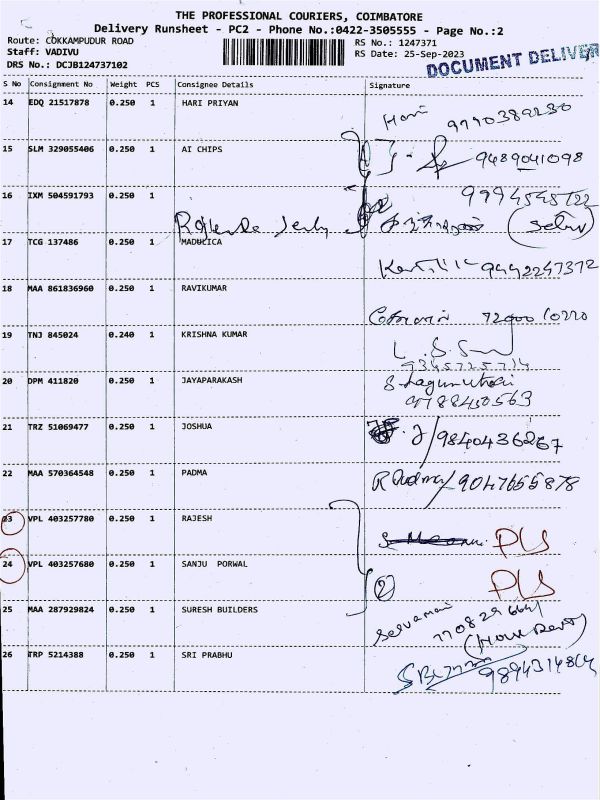 THE PROFESSIONAL COURIERS, COIMBATORE
Delivery Runsheet - PC2 - Phone No.:0422-3505555 - Page No.:2
Route: COKKAMPUDUR ROAD
Staff: VADIVU
DRS No.: DCJB124737102
RS No.: 1247371
RS Date: 25-Sep-2023
DOCUMENT DELIVER
S No Consignment No Weight PCS Consignee Details Signature
14 EDQ 21517878 0.250 1 HARI PRIYAN
Hari 9790389230
15 SLM 329055406 0.250 1 AI CHIPS
9489041098
16 IXM 504591793 0.250 1
17 TCG 137486 0.250 1 MADULICA
9442247372
18 MAA 861836960 0.250 1 RAVIKUMAR
72000 10220
19 TNJ 845024 0.240 1 KRISHNA KUMAR
9345725714
20 DPM 411820 0.250 1 JAYAPARAKASH
21 TRZ 51069477 0.250 1 JOSHUA
J/9840436267
22 MAA 570364548 0.250 1 PADMA
R Padma/9047655878
23 VPL 403257780 0.250 1 RAJESH
24 VPL 403257680 0.250 1 SANJU PORWAL
2
25 MAA 287929824 0.250 1 SURESH BUILDERS
26 TRP 5214388 0.250 1 SRI PRABHU